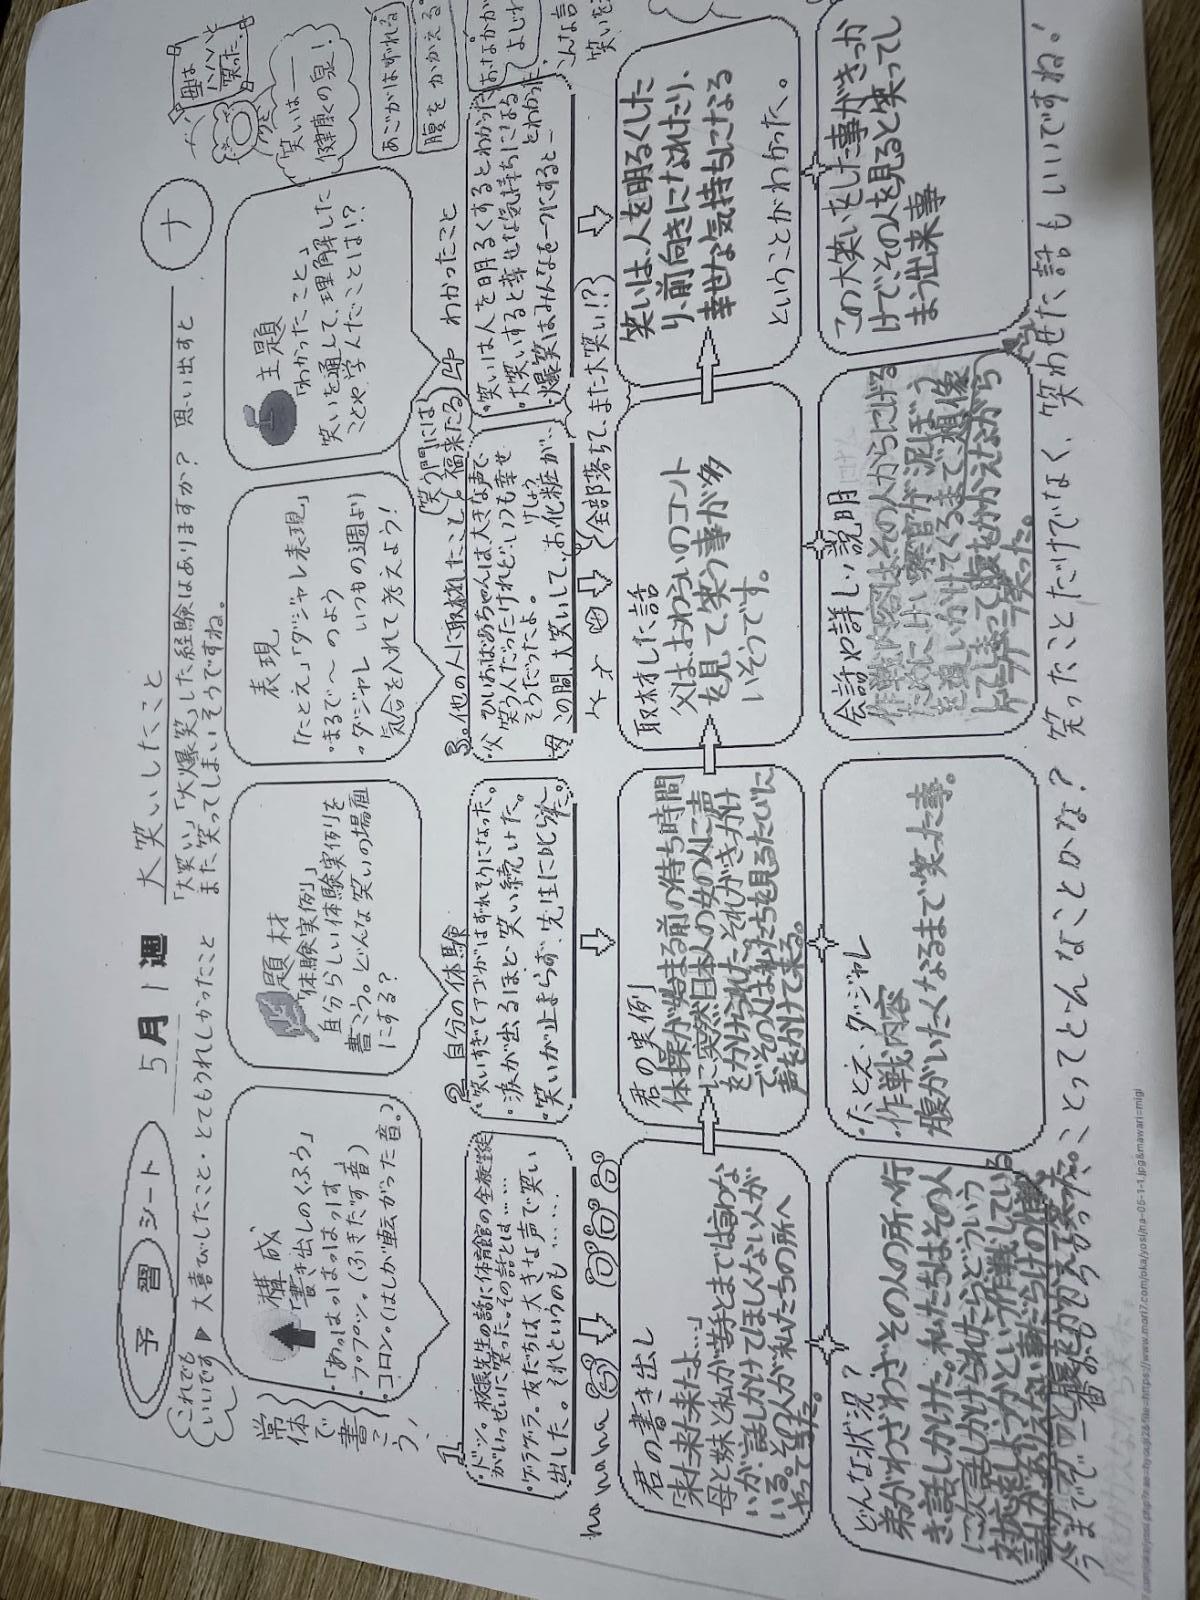 予習シート
5月1週
大笑いしたこと
ナ
これでも
いいです
▶大喜びしたこと・とてもうれしかったこと
「大笑い」「大爆笑」した経験はありますか？ 思い出すと
また笑ってしまいそうですね。
常体で書こう、
構成
「書き出しのくふう」
・「あっはっはっはっはっ」
・プププッ。(ふきだす音)
・コロン。(はしが転がった音。)
題材
「体験実例」
自分らしい体験実例を
書こう。どんな笑いの場面
にする？
表現
「たとえ」「ダジャレ表現」
・まるで～のよう
・ダジャレ いつもの3週より
気合を入れて考えよう！
主題
「わかったこと」
笑いを通して、理解した
ことや学んだことは!?
笑った。
笑いは──
健康の泉！
あごがはずれる
腹をかかえる
笑う門には
福来たる
1
・ドッ。校長先生の話に体育館の全校生徒
がいっせいに笑った。その話とは……
・ゲラゲラ。友だちは、大きな声で笑い
出した。それというのも………
2 自分の体験
・笑いすぎてアゴがはずれそうになった。
・涙が出るほど、笑い続けた。
・笑いが止まらず、先生に叱られた。
3.他の人に取材したこと。
・父 ひいおばあちゃんは、大きな声で
笑う人だったけれど、いつも幸せ
そうだったよ。
母 この間、大笑いして、お化粧が、
全部落ちて、また大笑い!?
4 わかったこと
・笑いは人を明るくするとわかった
・大笑いすると幸せな気持ちになる
とわかった
・爆笑はみんなを一つにすると―
ha ha ha
君の書き出し
「来た来た来たよ…」
母と妹と私が苦手とまでは言わな
いが、話しかけてほしくない人が
いる。その人が私たちの所へ
やってきた。
君の実例
体操が始まる前の待ち時間
に突然日本人の女の人に声
をかけられた。それがきっかけ
でその人は私たちを見るたびに
声をかけて来る。
取材した話
父は、おわらいのコント
を見て笑う事が多
いそうです。
笑いは、人を明るくした
り、前向きになれたり、
幸せな気持ちになる
ということがわかった。
どんな状況？
弟がわざわざその人の所へ行
き、話しかけた。私たちはその人
に次話しかけられたらどういう
対応をしようかという作戦している
たとえ、ダジャレ
・作戦内容
腹がいたくなるまで笑った事。
会話や詳しい説明
作戦内容はその人からにげる
ために、けい察官が泥ぼう
を追いかけてくるまで想像
してしまって腹をかかえながら
この大笑いをした事がきっか
けで、その人を見ると笑ってし
まう出来事
今までで一番おもしろかったことってどんなことかな？ 笑ったことだけでなく、笑わせた話もいいですね！